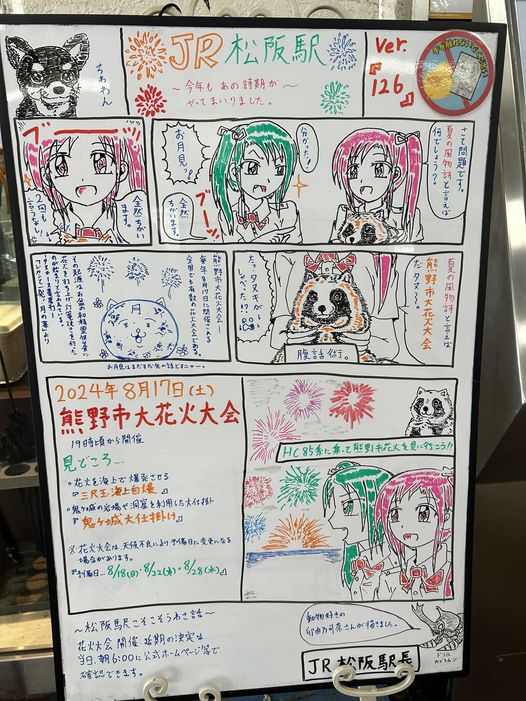 JR松阪駅
～今年もあの時期が～
やってまいりました。
ver.
『126』
手を触れないでください
ちゃわん
さて問題です。
夏の風物詩と言えば
何でしょう?
分かった!
お月見?
ブーッ
全然
ちがい
ます。
ブー
全然ちがい
ます。
2回も
言うなし!
夏の風物詩と言えば
熊野市大花火大会
だヌ～。
たっ、タヌキが
しゃべった!?
腹話術。
熊野市大花火大会…
毎年8月17日に開催される
全国でも有数の花火大会である。
その起源はお盆の初精霊供養に
花火を打ち上げ
お月見はまだまだ先の話どすニャー。
2024年8月17日(土)
熊野市大花火大会
19時頃から開催
見どころ…
• 花火を海上で爆発させる
『三尺玉海上自爆』
• 鬼ヶ城の岩場や洞窟を利用した大仕掛け
『鬼ヶ城大仕掛け』
※花火大会は、天候不良により予備日に変更になる
場合があります。
『予備日…8/18(日)・8/22(木)・8/28(水)』
HC85系に乗って熊野市花火を見に行こう!!
～松阪駅こそこそうわさ話～
花火大会開催、延期の決定は
当日、朝6:00に公式ホームページ等で
確認できます。
動物好きの
さんが描きました。
JR松阪駅長